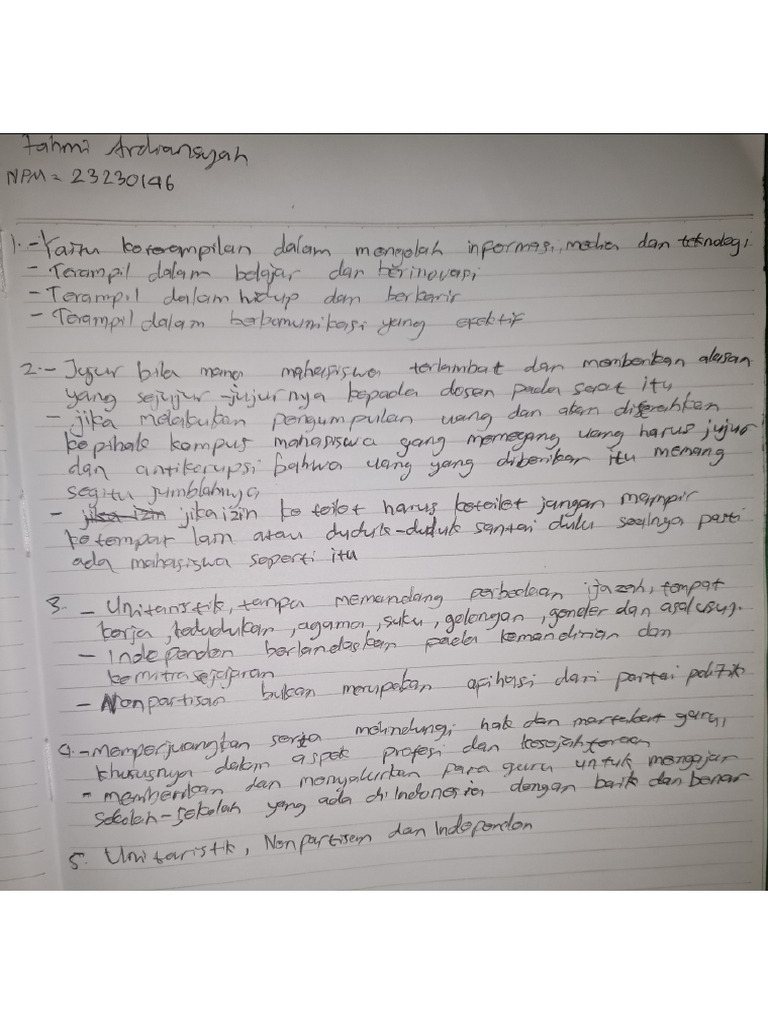 Fahmi Ardiansyah
NPM = 23230146
1. - Yaitu keterampilan dalam mengolah informasi, media dan teknologi
- Terampil dalam belajar dan berinovasi
- Terampil dalam hidup dan berkarir
- Terampil dalam berkomunikasi yang efektif
2. - Jujur bila mana mahasiswa terlambat dan memberikan alasan
yang sejujur-jujurnya kepada dosen pada saat itu
- jika melakukan pengumpulan uang dan akan diserahkan
ke pihak kampus mahasiswa yang memegang uang harus jujur
dan antikorupsi bahwa uang yang diberikan itu memang
segitu jumblahnya
- jika izin jika izin ke toilet harus ketoilet jangan mampir
ke tempat lain atau duduk-duduk santai dulu soalnya pasti
ada mahasiswa seperti itu
3. - Unitaristik, tanpa memandang perbedaan ijazah, tempat
kerja, kedudukan, agama, suku, golongan, gender dan asal usug.
- Independen berlandaskan pada kemandirian dan
kemitrasejajaran
- Nonpartisan bukan merupakan afiliasi dari partai politik
4. - memperjuangkan serta melindungi hak dan martabat guru,
khususnya dalam aspek profesi dan kesejahteraan
- memberikan dan menyalurkan para guru untuk mengajar
sekolah-sekolah yang ada di Indonesia dengan baik dan benar
5. Unitaristik, Nonpartisan dan Independen